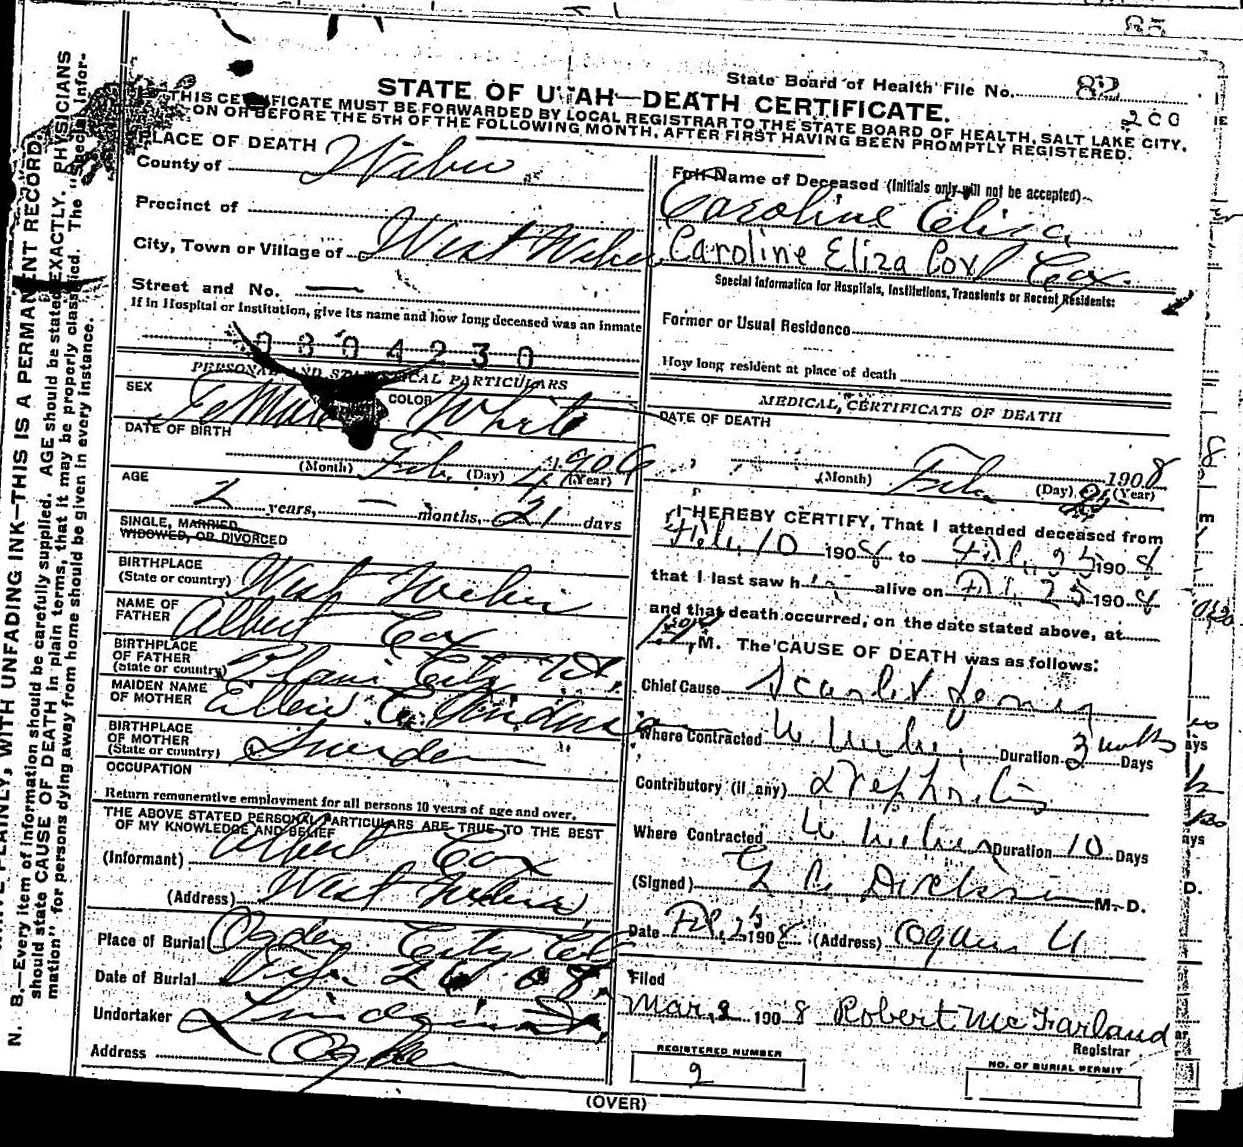 85
State Board of Health File No. 82
STATE OF UTAH—DEATH CERTIFICATE.
200
THIS CERTIFICATE MUST BE FORWARDED BY LOCAL REGISTRAR TO THE STATE BOARD OF HEALTH, SALT LAKE CITY,
ON OR BEFORE THE 5TH OF THE FOLLOWING MONTH, AFTER FIRST HAVING BEEN PROMPTLY REGISTERED.
PLACE OF DEATH
County of Weber
Precinct of
City, Town or Village of West Weber
Street and No. —
If in Hospital or Institution, give its name and how long deceased was an inmate
0804230
PERSONAL AND STATISTICAL PARTICULARS
SEX Female COLOR White
DATE OF BIRTH
(Month) Feb. (Day) 4 1906 (Year)
AGE
2 years, — months, 21 days
SINGLE, MARRIED
WIDOWED, OR DIVORCED
BIRTHPLACE
(State or country) West Weber
NAME OF
FATHER Albert Cox
BIRTHPLACE
OF FATHER
(State or country) Plain City Ut.
MAIDEN NAME
OF MOTHER Ellen E.
BIRTHPLACE
OF MOTHER
(State or country) Sweden
OCCUPATION
Return remunerative employment for all persons 10 years of age and over.
THE ABOVE STATED PERSONAL PARTICULARS ARE TRUE TO THE BEST
OF MY KNOWLEDGE AND BELIEF
(Informant) Albert Cox
(Address) West Weber
Place of Burial Ogden City Cem
Date of Burial Feb. 26 08
Undertaker Lindquist
Address Ogden
Full Name of Deceased (Initials only will not be accepted)
Caroline Eliza
Caroline Eliza Cox Cox
Special Information for Hospitals, Institutions, Transients or Recent Residents:
Former or Usual Residence
How long resident at place of death
MEDICAL CERTIFICATE OF DEATH
DATE OF DEATH
(Month) Feb (Day) 25 1908 (Year)
I HEREBY CERTIFY, That I attended deceased from
Feb. 10 1908 to Feb. 25 1908
that I last saw h alive on Feb. 25 1908
and that death occurred, on the date stated above, at
M. The CAUSE OF DEATH was as follows:
Chief Cause Scarlet fever
Where Contracted W. Weber, Duration 3 weeks Days
Contributory (if any) Nephritis
Where Contracted W. Weber Duration 10 Days
(Signed) M. D.
Date Feb. 25 1908 (Address) Ogden U
Filed
Mar. 2 1908 Robert McFarland
Registrar
REGISTERED NUMBER
9
NO. OF BURIAL PERMIT
(OVER)
N. B.—Every item of information should be carefully supplied. AGE should be stated EXACTLY. PHYSICIANS
should state CAUSE OF DEATH in plain terms, that it may be properly classified. The "Special Infor-
mation" for persons dying away from home should be given in every instance.
PLAINLY, WITH UNFADING INK—THIS IS A PERMANENT RECORD.